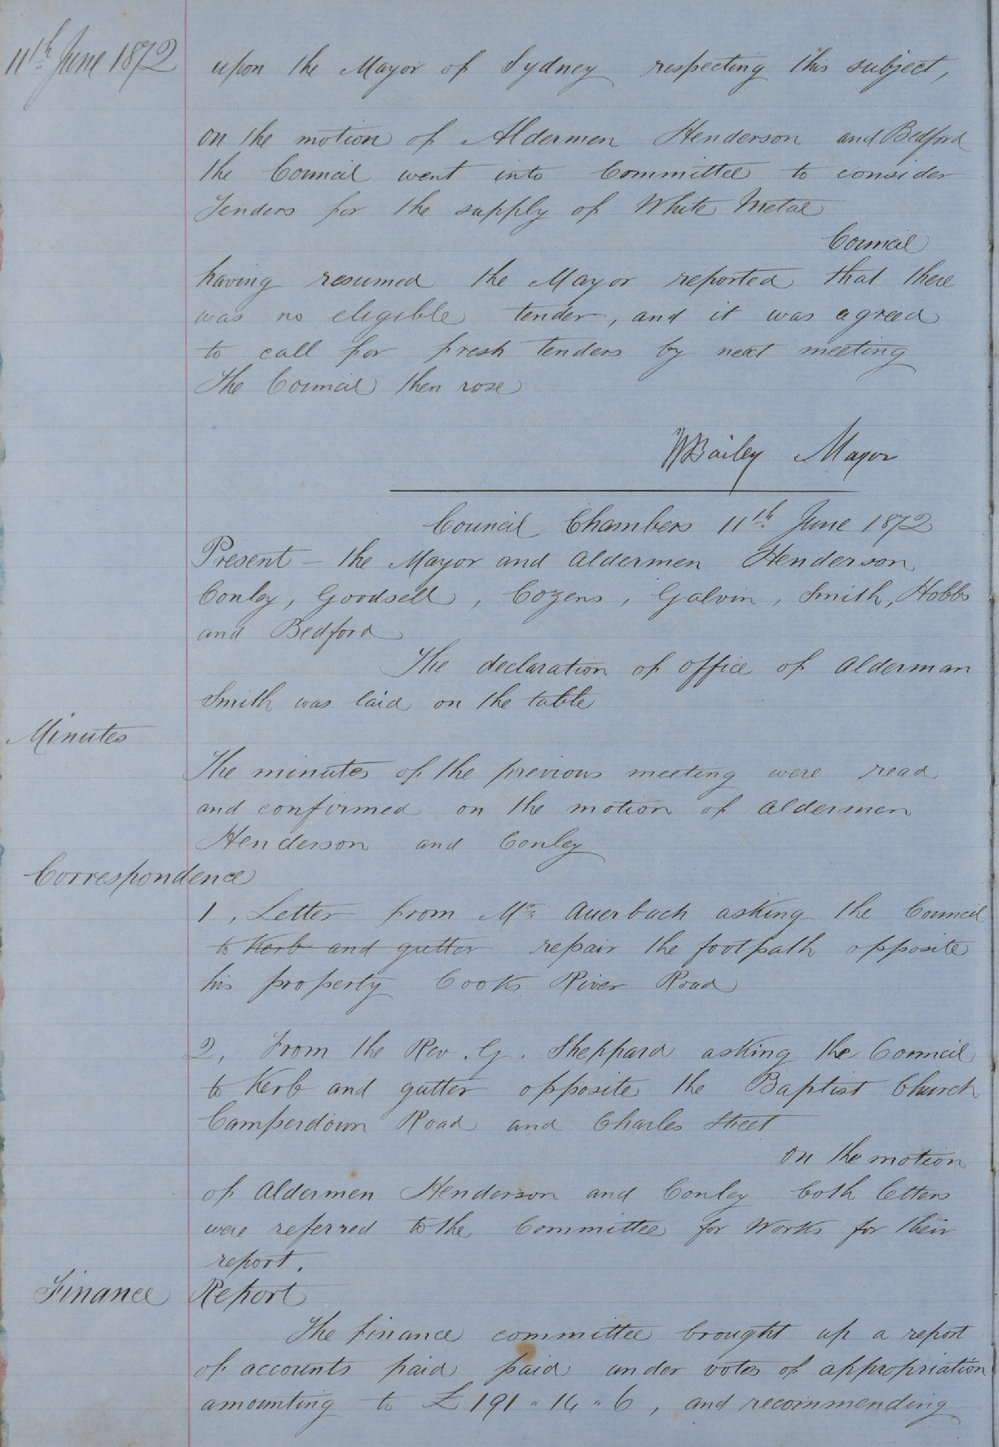 11th June 1872
upon the Mayor of Sydney respecting this subject,
on the motion of Aldermen Henderson and Bedford
the Council went into Committee to consider
Tenders for the supply of White Metal
Council
having resumed the Mayor reported that there
was no eligible tender, and it was agreed
to call for fresh tenders by next meeting
The Council then rose
W Bailey Mayor
Council Chambers 11th June 1872
Present - the Mayor and Aldermen Henderson
Conley, Goodsell, Cozens, Galvin, Smith, Hobbs
and Bedford
The declaration of office of Alderman
Smith was laid on the table
Minutes
The minutes of the previous meeting were read
and confirmed on the motion of Aldermen
Henderson and Conley
Correspondence
1, Letter from Mr Auerbach asking the Council
to Kerb and gutter repair the footpath opposite
his property Cooks River Road
2, From the Rev. G. Sheppard asking the Council
to Kerb and gutter opposite the Baptist Church
Camperdown Road and Charles Street
on the motion
of Aldermen Henderson and Conley both letters
were referred to the Committee for Works for their
report.
Finance Report
The finance committee brought up a report
of accounts paid paid under votes of appropriation
amounting to £191 " 14 " 6, and recommending